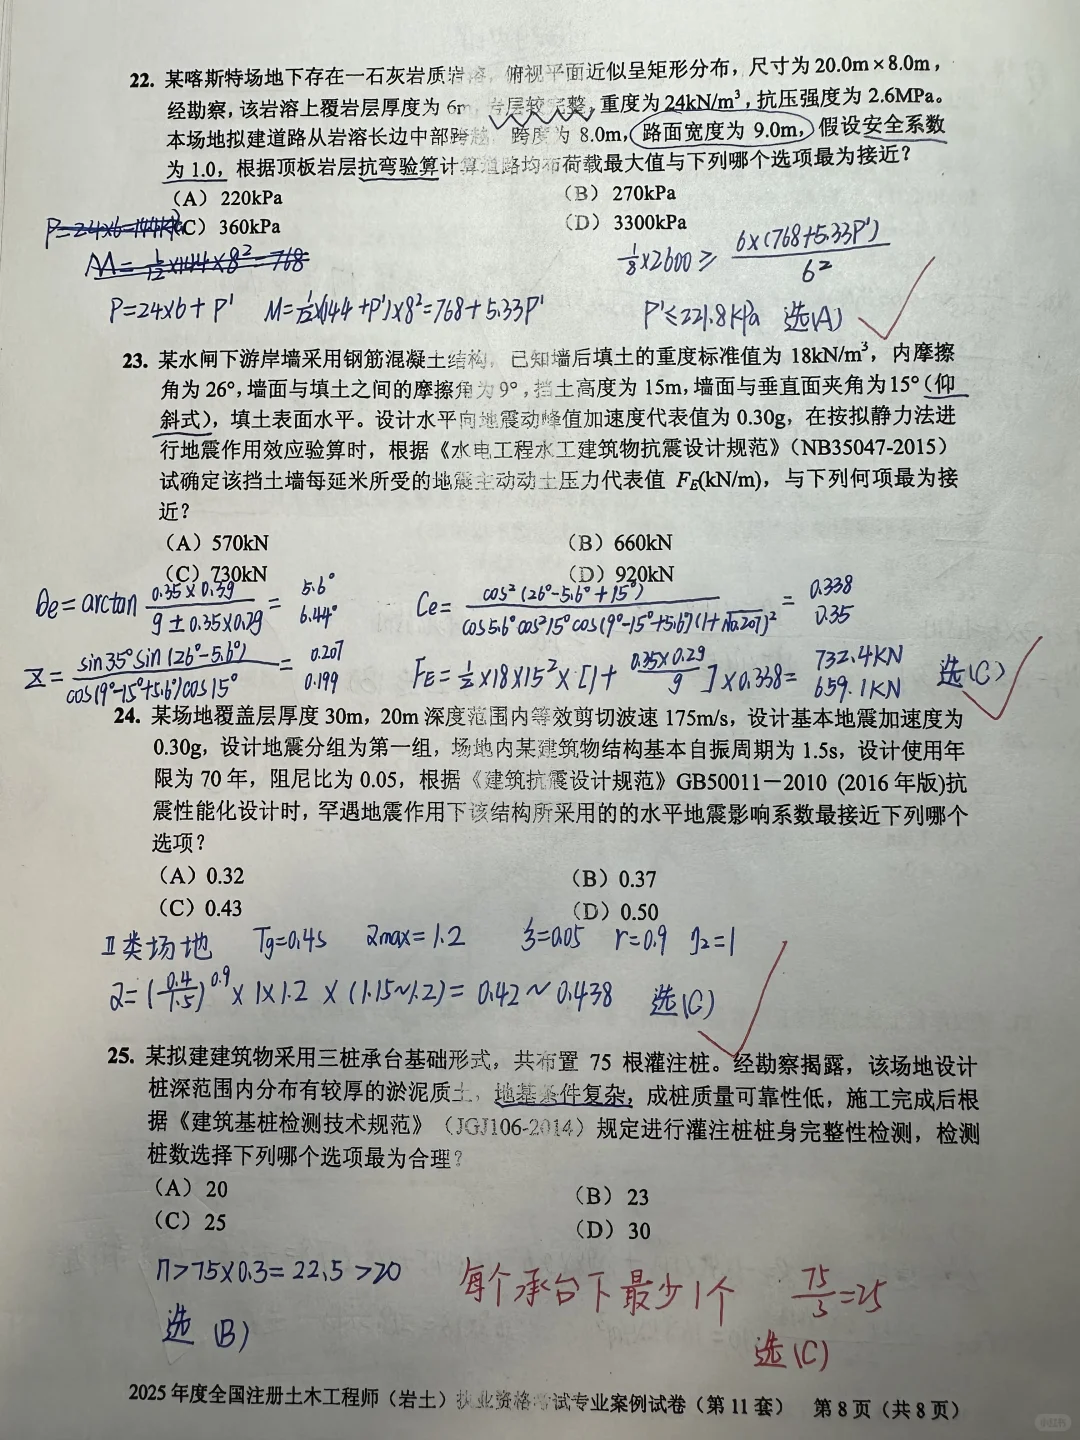 22. 某喀斯特场地下存在一石灰岩质岩溶，俯视平面近似呈矩形分布，尺寸为 20.0m×8.0m，
经勘察，该岩溶上覆岩层厚度为 6m，岩层较完整，重度为 24kN/m³，抗压强度为 2.6MPa。
本场地拟建道路从岩溶长边中部跨越，跨度为 8.0m，路面宽度为 9.0m，假设安全系数
为 1.0，根据顶板岩层抗弯验算计算道路均布荷载最大值与下列哪个选项最为接近？
（A）220kPa （B）270kPa
（C）360kPa （D）3300kPa
P=24×6=144kPa
M=1/12×144×8²=768
1/8×2600≥6×(768+5.33P')/6²
P=24×6+P' M=1/12×(144+P')×8²=768+5.33P' P'≤221.8kPa 选(A)
23. 某水闸下游岸墙采用钢筋混凝土结构，已知墙后填土的重度标准值为 18kN/m³，内摩擦
角为 26°，墙面与填土之间的摩擦角为 9°，挡土高度为 15m，墙面与垂直面夹角为 15°（仰
斜式），填土表面水平。设计水平向地震动峰值加速度代表值为 0.30g，在按拟静力法进
行地震作用效应验算时，根据《水电工程水工建筑物抗震设计规范》（NB35047-2015）
试确定该挡土墙每延米所受的地震主动动土压力代表值 FE(kN/m)，与下列何项最为接
近？
（A）570kN （B）660kN
（C）730kN （D）920kN
θe=arctan 0.35×0.3g/(g±0.35×0.2g)= 5.6° 6.44° Ce= cos²(26°-5.6°+15°)/(cos5.6°cos²15°cos(9°-15°+5.6°)(1+√0.207)²)= 0.338 0.35
Z= sin35°sin(26°-5.6°)/(cos(9°-15°+5.6°)cos15°)= 0.207 0.199 FE=1/2×18×15²×[1+0.35×0.2g/g]×0.338= 732.4KN 659.1KN 选(C)
24. 某场地覆盖层厚度 30m，20m 深度范围内等效剪切波速 175m/s，设计基本地震加速度为
0.30g，设计地震分组为第一组，场地内某建筑物结构基本自振周期为 1.5s，设计使用年
限为 70 年，阻尼比为 0.05，根据《建筑抗震设计规范》GB50011－2010 (2016 年版)抗
震性能化设计时，罕遇地震作用下该结构所采用的的水平地震影响系数最接近下列哪个
选项？
（A）0.32 （B）0.37
（C）0.43 （D）0.50
Ⅱ类场地 Tg=0.4s αmax=1.2 ξ=0.05 r=0.9 η2=1
α=(0.4/1.5)^0.9×1×1.2×(1.15~1.2)=0.42~0.438 选(C)
25. 某拟建建筑物采用三桩承台基础形式，共布置 75 根灌注桩。经勘察揭露，该场地设计
桩深范围内分布有较厚的淤泥质土，地基条件复杂，成桩质量可靠性低，施工完成后根
据《建筑基桩检测技术规范》（JGJ106-2014）规定进行灌注桩桩身完整性检测，检测
桩数选择下列哪个选项最为合理？
（A）20 （B）23
（C）25 （D）30
n>75×0.3=22.5>20 每个承台下最少1个 75/3=25
选(B) 选(C)
2025 年度全国注册土木工程师（岩土）执业资格考试专业案例试卷（第 11 套） 第 8 页（共 8 页）
小红书